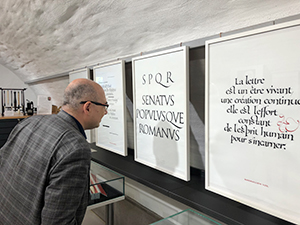 SPQR
SENATVS
POPVLVSQVE
ROMANVS
La lettre
est un être vivant
une création continue
elle est l'effort
constant
de l'esprit humain
pour s'incarner.